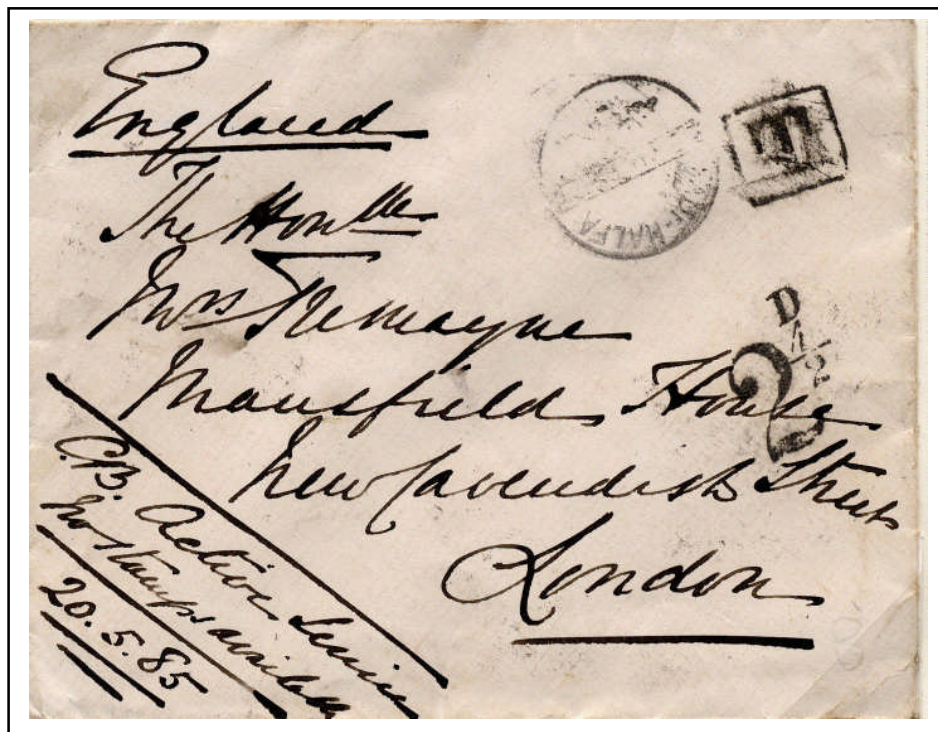 England
The Honble
Mrs Tremayne
Mansfield House
New Cavendish Street
London
C.B. Active Service
No stamps available
20.5.85
-HALFA
T
D
2 1/2